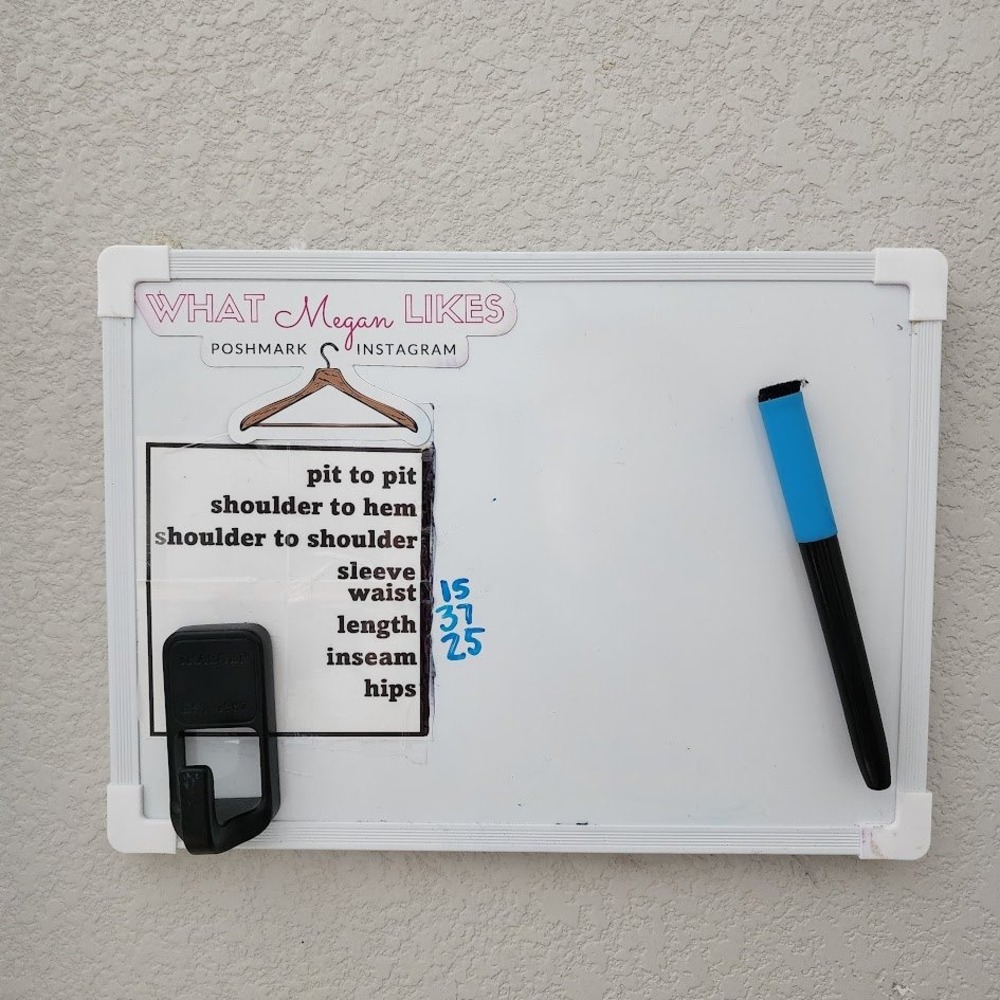 WHAT Megan LIKES
POSHMARK INSTAGRAM
pit to pit
shoulder to hem
shoulder to shoulder
sleeve
waist 15
length 37
inseam 25
hips